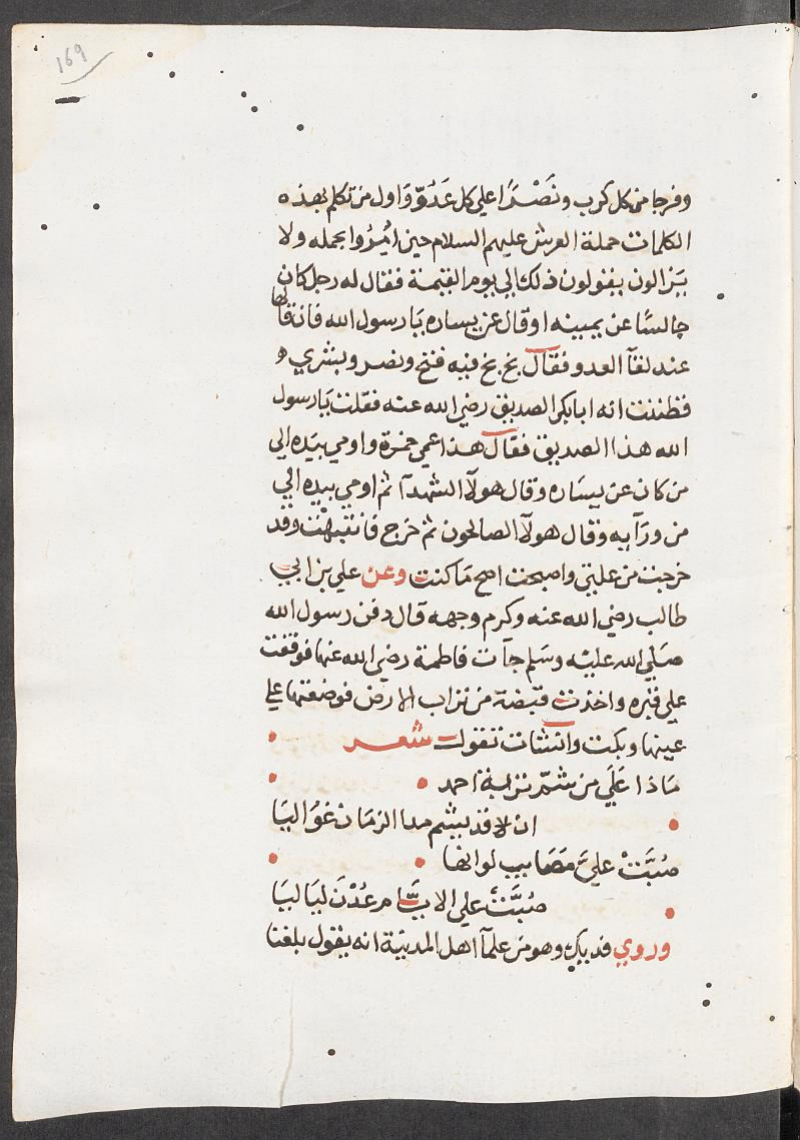 169
وفرجا من كل كرب ونَصْرًا علي كل عَدُوّ وَاول من تكلم بهذه
الكلمات حملة العرش عليهم السلام حين اُمِرُوا بحمله ولا
يَزالون يقولون ذلك الي يوم القيمة فقال له رجل كان
جالسًا عن يمينه او قال عن يساره يَا رسول الله فان قالها
عند لقآ العدو فقال بخ بخ فيه فتح ونصر وبشري
فظننت انه ابا بكر الصديق رضي الله عنه فقلت يَا رسول
الله هذا الصديق فقال هذا عمي حمزة واومي بيَده الي
من كان عن يسَاره وقال هولآ الشهدآ ثم اومي بيده الي
من ورَآيه وقال هولآ الصالحون ثم خرج فانتبهْت وقد
خرجت من علتي واصبحت اصح مَا كنت وعن علي بن ابي
طالب رضي الله عنه وكرم وجهه قال دفن رسول الله
صَلي الله عليْه وسَلم جآت فاطمة رضي الله عنها فوقفت
علي قبره واخذت قبضة من تراب الارض فوضعتها علي
عينها وبكت وانشات تقول شعر
مَاذا عَلَي من شمّ تربة احمد
ان لا قد يشم مدا الزمَان غوُاليَا
صُبَّتْ عليَّ مَصَايب لو انها
صُبَّتْ علي الايَّام عُدْنَ ليَاليَا
وروي فديك وهو من علمآ اهل المدينة انه يقول بلغنا